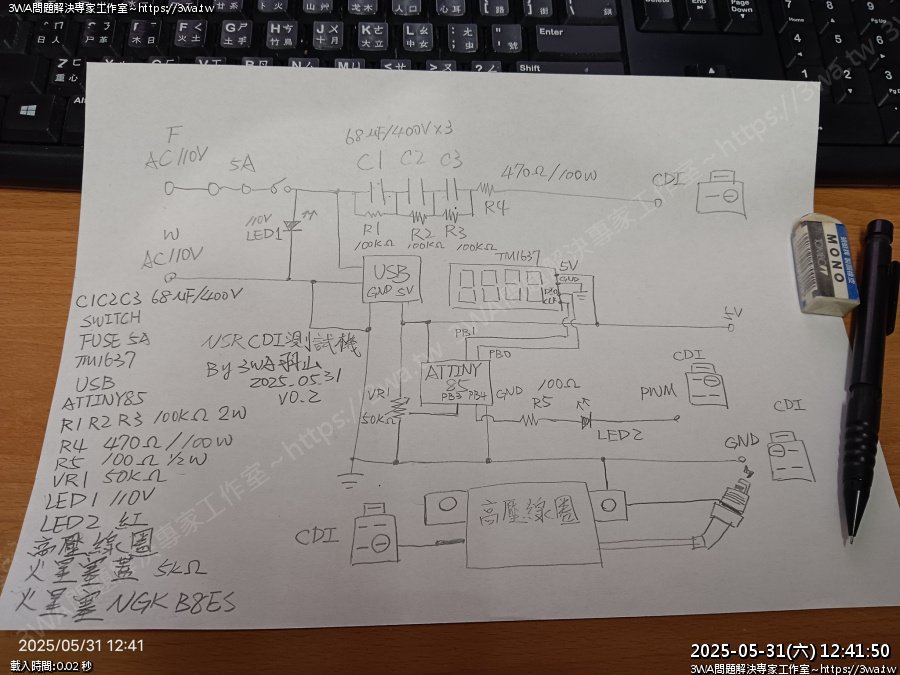 3WA問題解決專家工作室~https://3wa.tw
F
AC110V
5A
68μF/400V×3
C1 C2 C3
470Ω/100W
R4
CDI
110V
LED1
R1 R2 R3
100KΩ 100KΩ 100KΩ
W
AC110V
USB
GND 5V
TM1637
5V
GND
DIO
CLK
5V
C1C2C3 68μF/400V
SWITCH
FUSE 5A
TM1637
USB
ATTINY85
R1 R2 R3 100KΩ 2W
R4 470Ω/100W
R5 100Ω 1/2W
VR1 50KΩ
LED1 110V
LED2 紅
高壓線圈
火星塞蓋 5KΩ
火星塞 NGK B8ES
NSR CDI測試機
By 3WA羽山
2025.05.31
V0.2
PB1
PB0
ATTINY
85
PB3 PB4
GND
VR1
50KΩ
100Ω
R5
LED2
PWM
CDI
CDI
GND
CDI
高壓線圈
Enter
Shift
Alt
End
Page
Down
MONO
2025/05/31 12:41
載入時間:0.02 秒
2025-05-31(六) 12:41:50
3WA問題解決專家工作室~https://3wa.tw